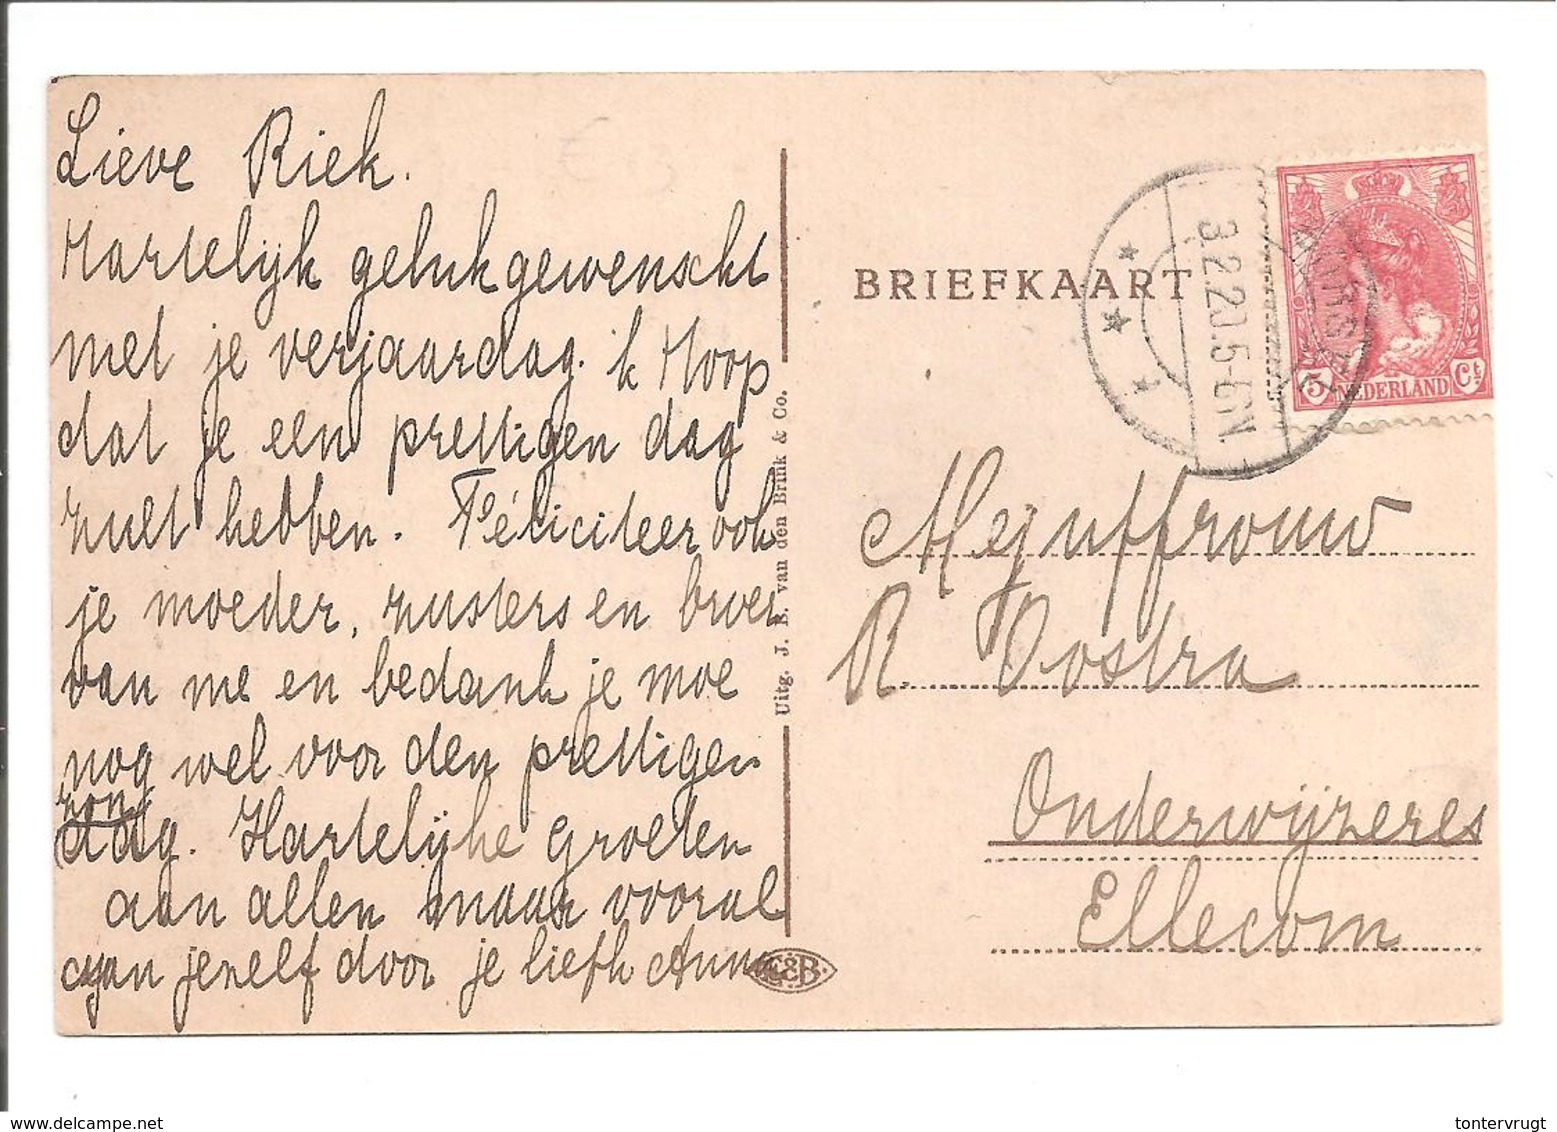 Lieve Riek.
Hartelijk gelukgewenscht
met je verjaardag. ik Hoop
dat je een prettigen dag
zult hebben. Feliciteer ook
je moeder, zusters en broer
van me en bedank je moe
nog wel voor den prettigen
zon
dag. Hartelijke groeten
aan allen maar vooral
aan jezelf door je liefh Anna
Uitg. J. F. van den Brink & Co.
C&B
BRIEFKAART
3.2.20.5-6N
5 NEDERLAND Ct
Mejuffrouw
R. Oostra
Onderwijzeres
Ellecom
delcampe.net
tontervrugt